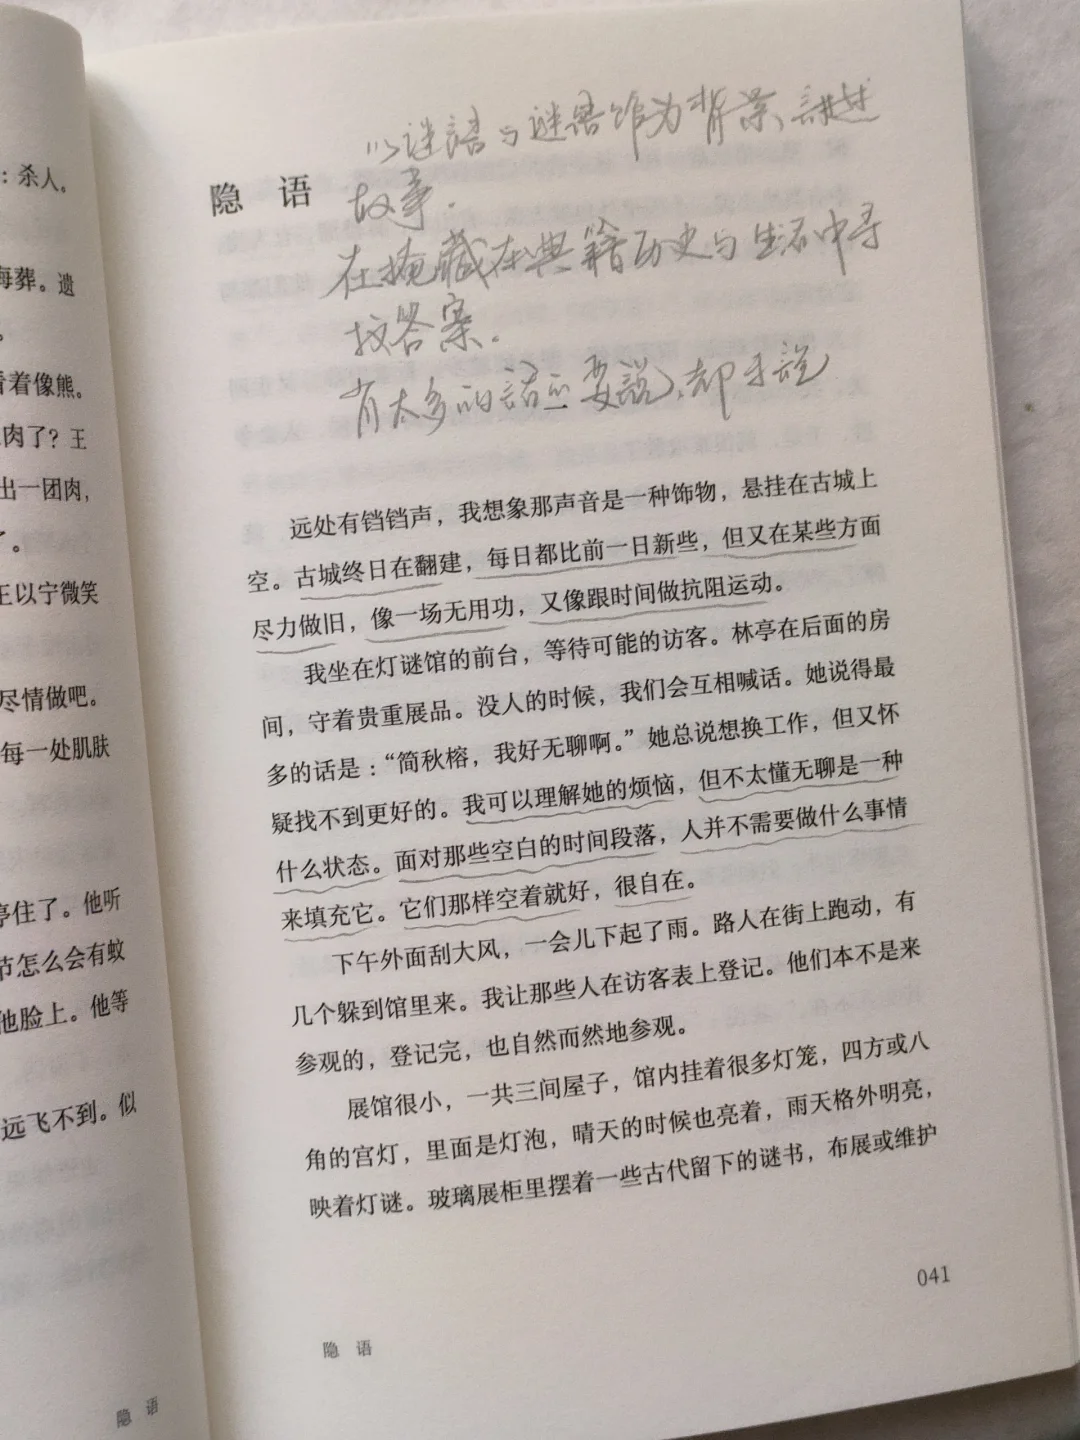 ：杀人。
海葬。遗
。
看着像熊。
肉了？王
出一团肉，
了。
王以宁微笑
尽情做吧。
每一处肌肤
停住了。他听
节怎么会有蚊
他脸上。他等
远飞不到。似
隐 语
隐 语
以谜語与谜語馆为背景，講述
故事.
在掩藏在典籍历史与生活中寻
找答案.
有太多的話要說，却
远处有铛铛声，我想象那声音是一种饰物，悬挂在古城上
空。古城终日在翻建，每日都比前一日新些，但又在某些方面
尽力做旧，像一场无用功，又像跟时间做抗阻运动。
我坐在灯谜馆的前台，等待可能的访客。林亭在后面的房
间，守着贵重展品。没人的时候，我们会互相喊话。她说得最
多的话是：“简秋榕，我好无聊啊。”她总说想换工作，但又怀
疑找不到更好的。我可以理解她的烦恼，但不太懂无聊是一种
什么状态。面对那些空白的时间段落，人并不需要做什么事情
来填充它。它们那样空着就好，很自在。
下午外面刮大风，一会儿下起了雨。路人在街上跑动，有
几个躲到馆里来。我让那些人在访客表上登记。他们本不是来
参观的，登记完，也自然而然地参观。
展馆很小，一共三间屋子，馆内挂着很多灯笼，四方或八
角的宫灯，里面是灯泡，晴天的时候也亮着，雨天格外明亮，
映着灯谜。玻璃展柜里摆着一些古代留下的谜书，布展或维护
041
隐 语